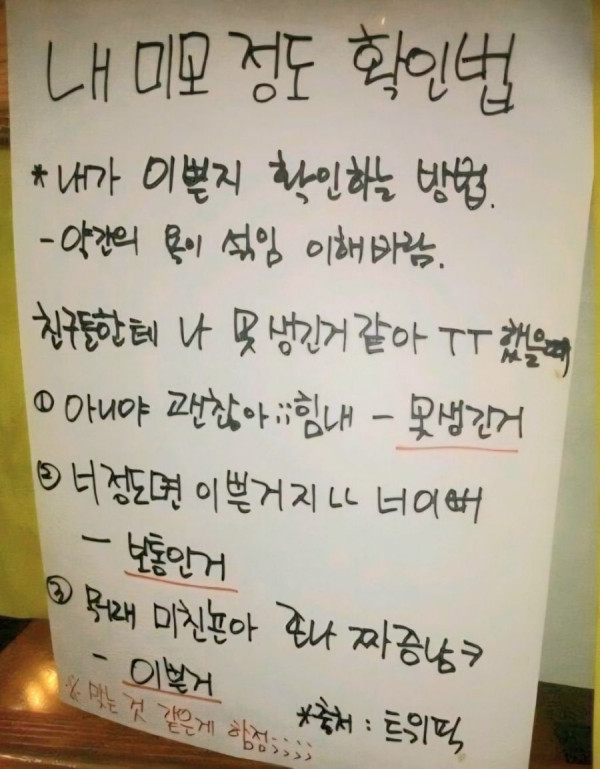 내 미모 정도 확인법
* 내가 이쁜지 확인하는 방법.
- 약간의 욕이 섞임 이해바람.
친구들한테 나 못생긴거 같아 ㅜㅜ 했을때
① 아니야 괜찮아;; 힘내 - 못생긴거
② 너정도면 이쁜거지 ㄴㄴ 너이뻐
- 보통인거
③ 뭐래 미친년아 존나 짜증남ㅋ
- 이쁜거
※ 맞는 것 같은게 함정;;;;
*출처 : 트위떡